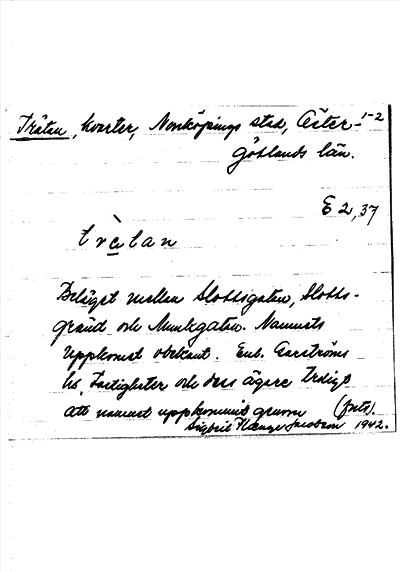 Trätan, kvarter, Norrköpings stad, Öster- 1-2
götlands län.
E 2, 37
trètan
Beläget mellan Slottsgatan, Slotts-
gränd och Munkgatan. Namnets
uppkomst obekant. Enl.
bl. Fastigheter och dess ägare troligt
att namnet uppkommit genom (forts).
Jacobson 1942.